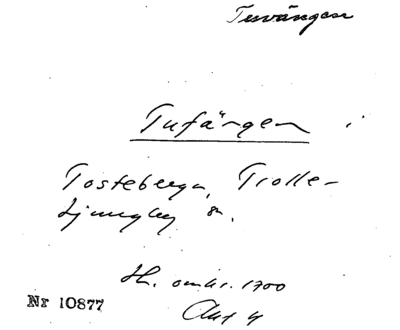 Tuvängen
Tufängen i
Tosteberga, Trolle-
Ljungby sn.
Hh. omkr. 1700
Nr 10877